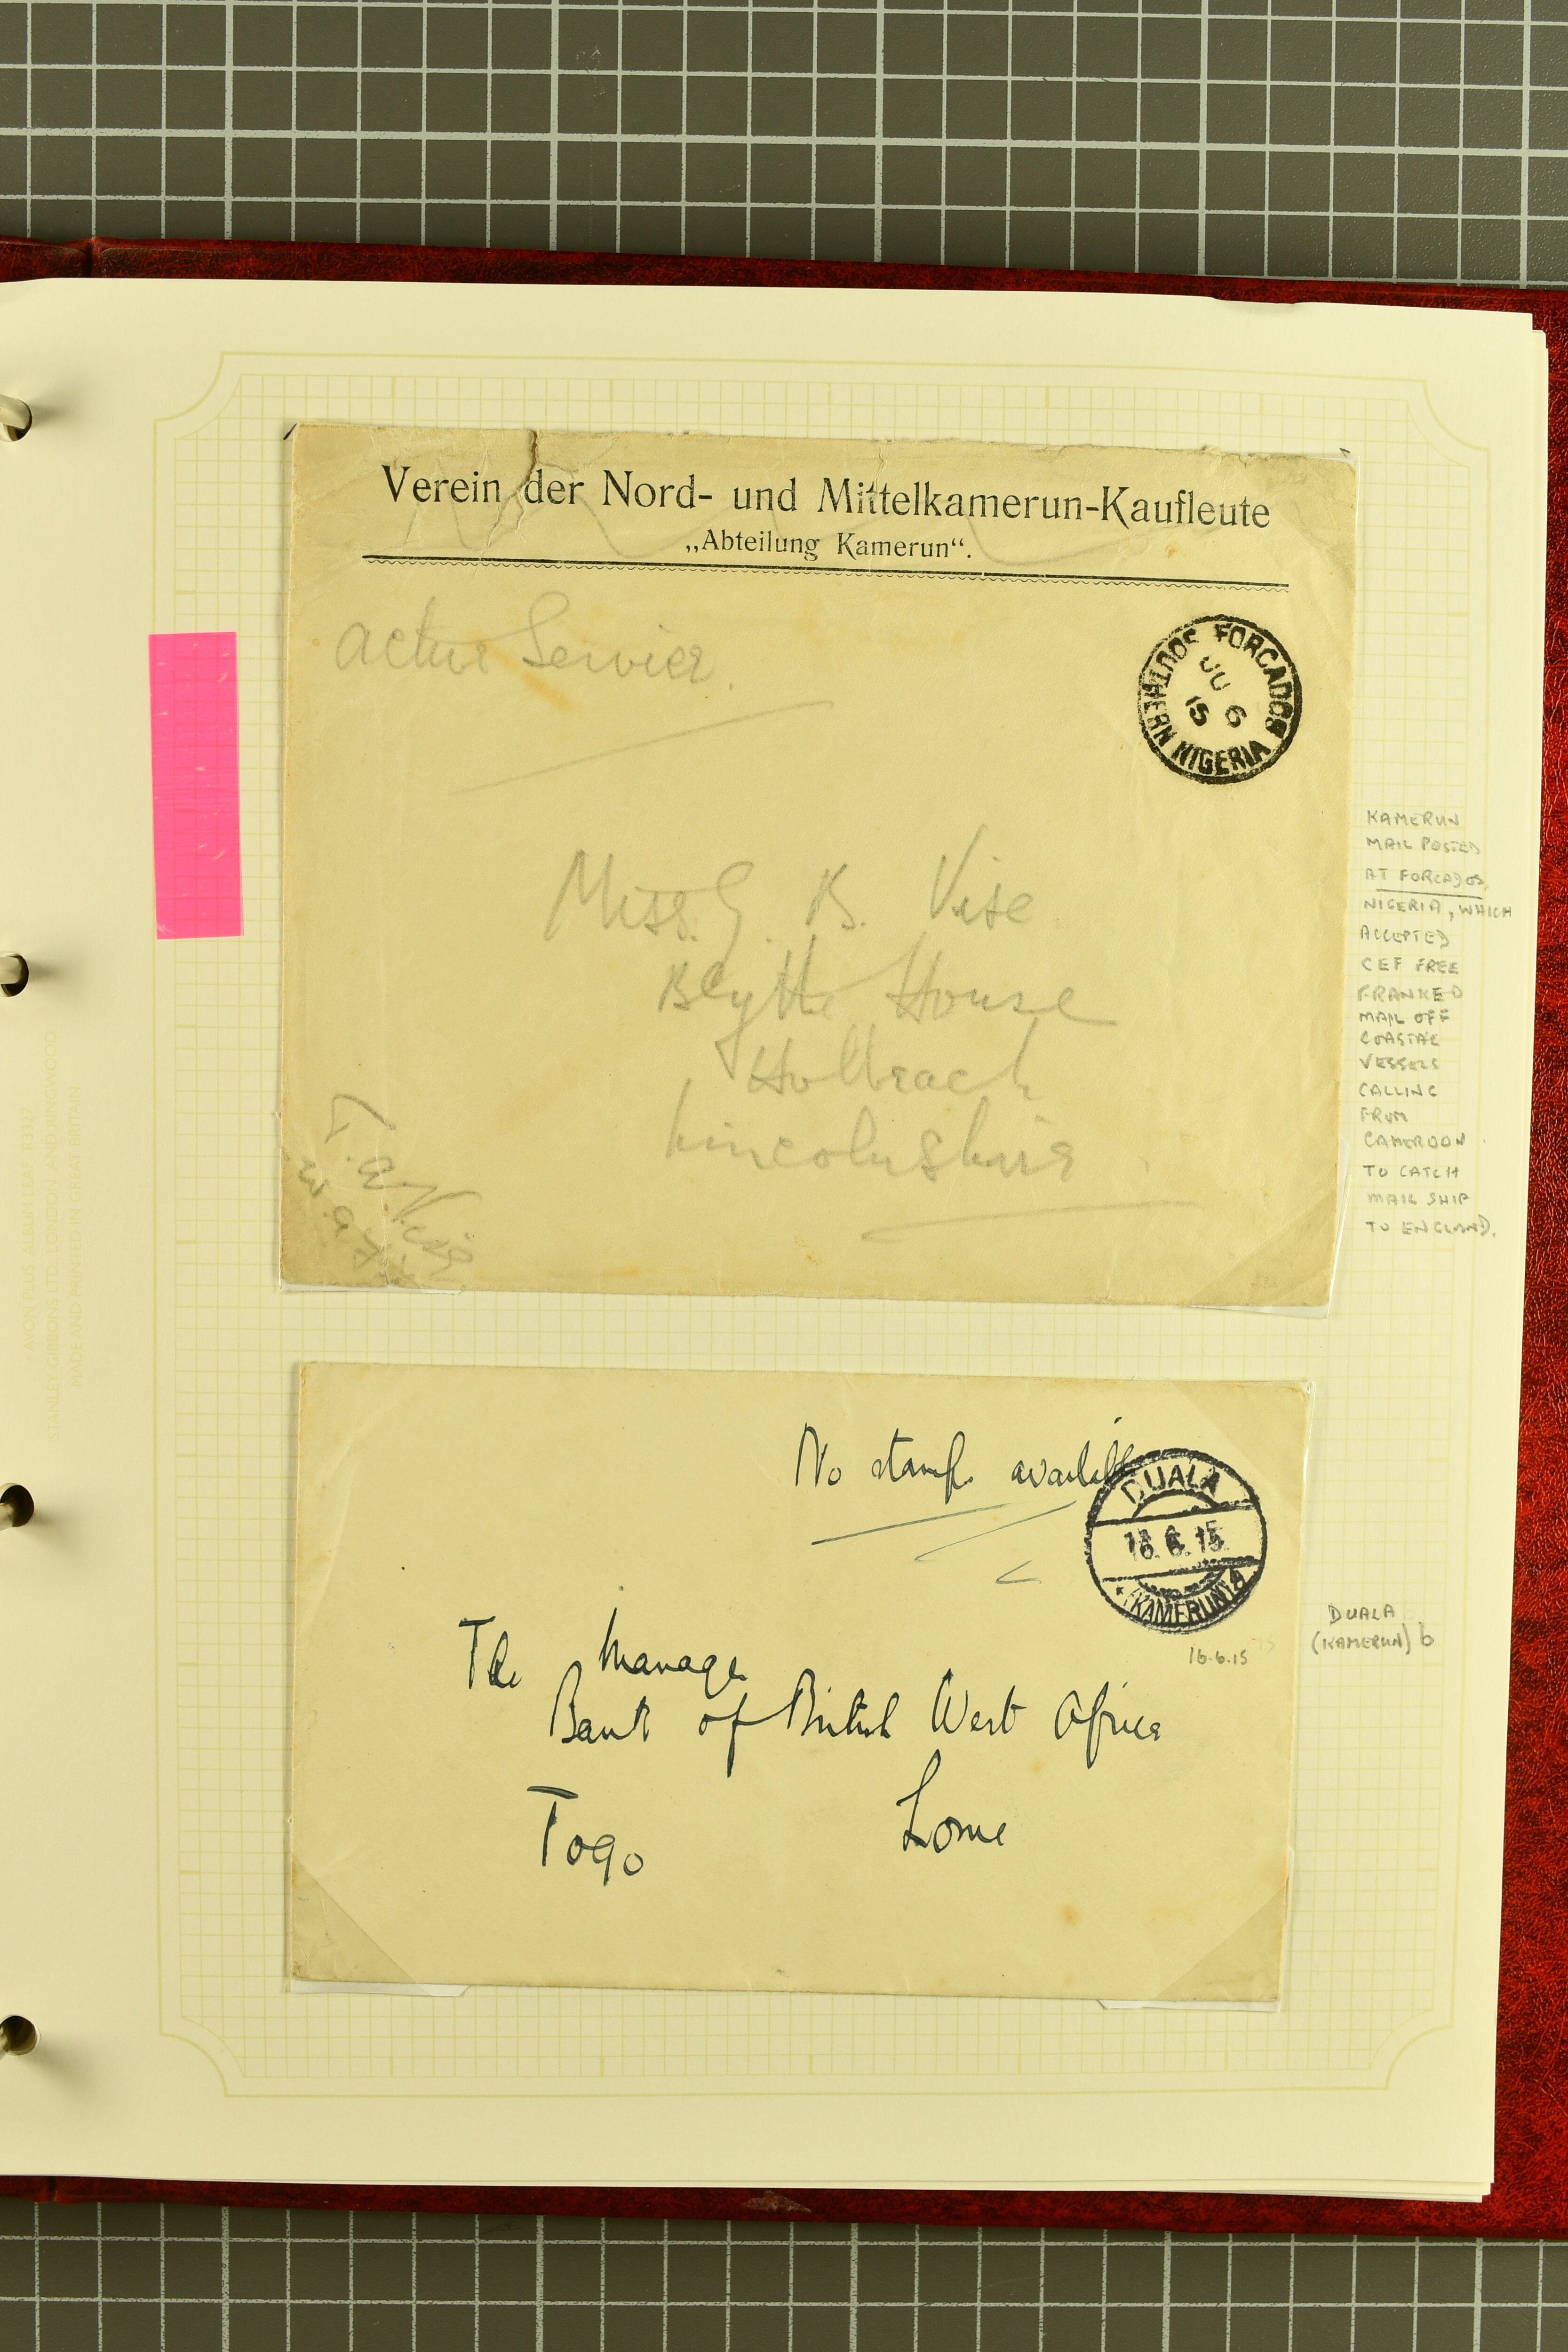 Verein der Nord- und Mittelkamerun-Kaufleute
„Abteilung Kamerun“.
Active Service.
SOUTHERN NIGERIA FORCADOS
JU 6
15
Miss. G. B. Vise
Blythe House
Holbeach
Lincolnshire
T. a. Vise
KAMERUN
MAIL POSTED
AT FORCADOS,
NIGERIA, WHICH
ACCEPTED
CEF FREE
FRANKED
MAIL OFF
COASTAL
VESSELS
CALLING
FROM
CAMEROON
TO CATCH
MAIL SHIP
TO ENGLAND.
No stamp available
DUALA
16.6.15
(KAMERUN)
16.6.15
The Manager
Bank of British West Africa
Togo Lome
DUALA
(KAMERUN) b
STANLEY GIBBONS LTD. LONDON AND RINGWOOD
MADE AND PRINTED IN GREAT BRITAIN